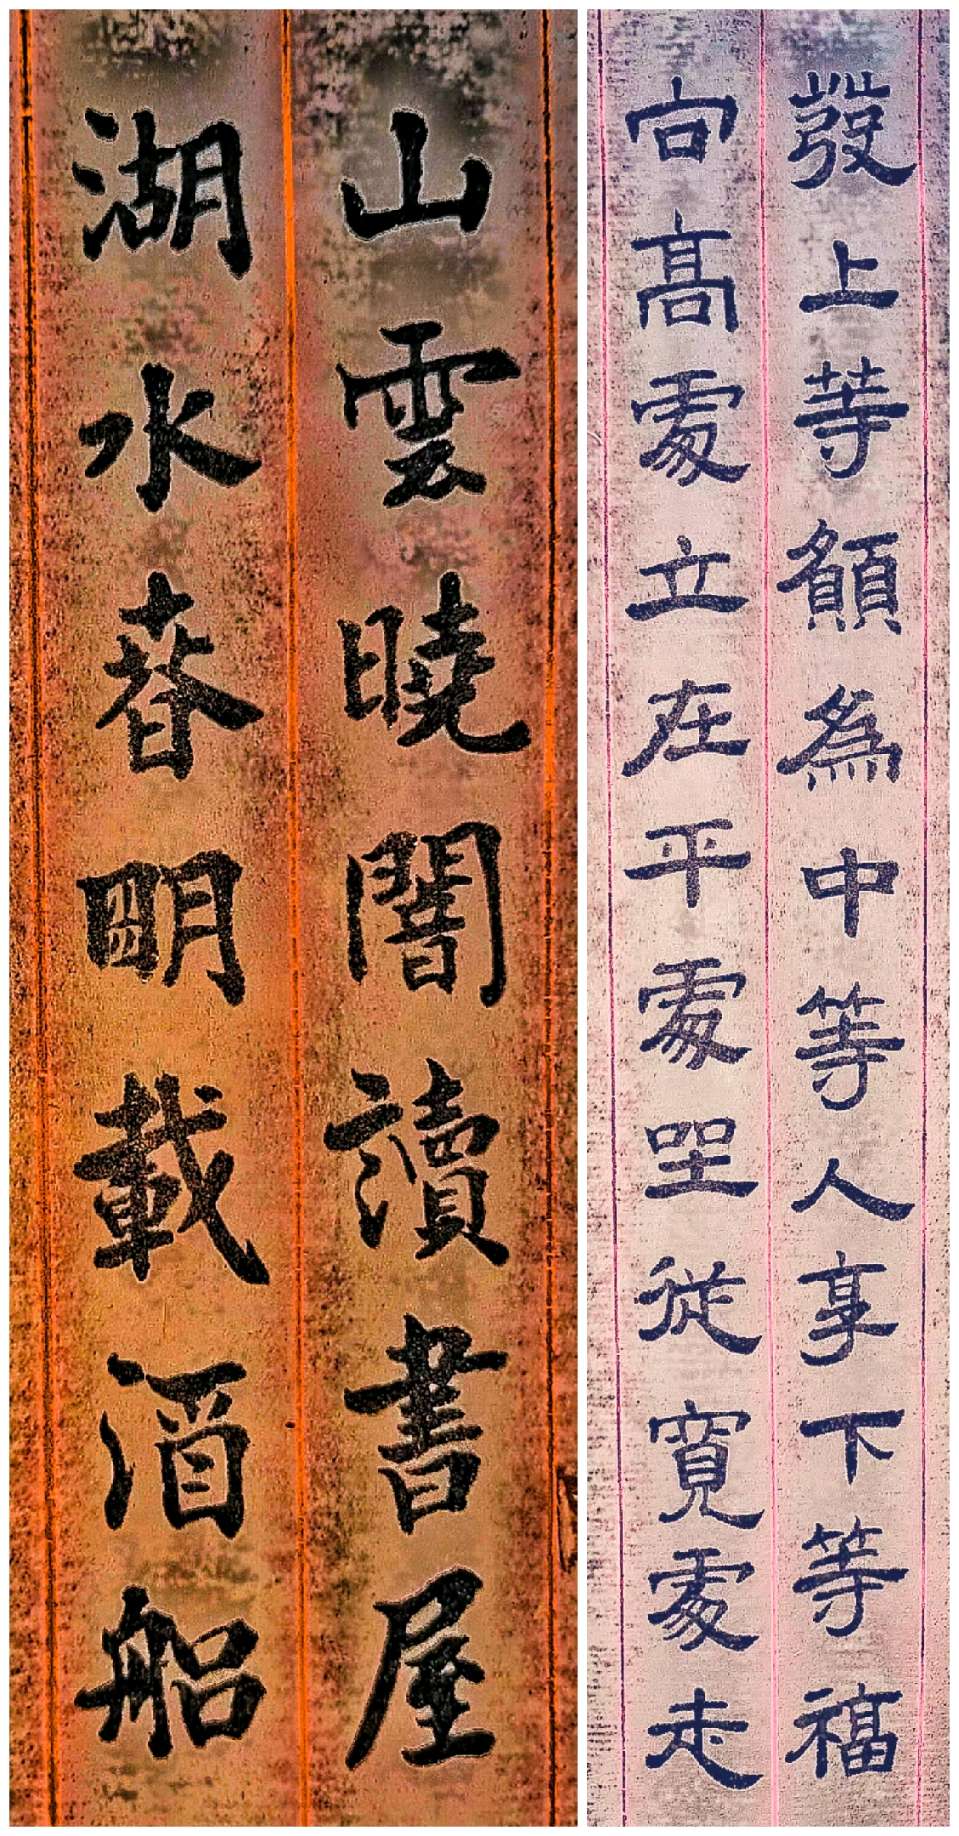 發上等願為中等人享下等福
向高處立在平處坐從寬處走
山雲曉闇讀書屋
湖水春明載酒船